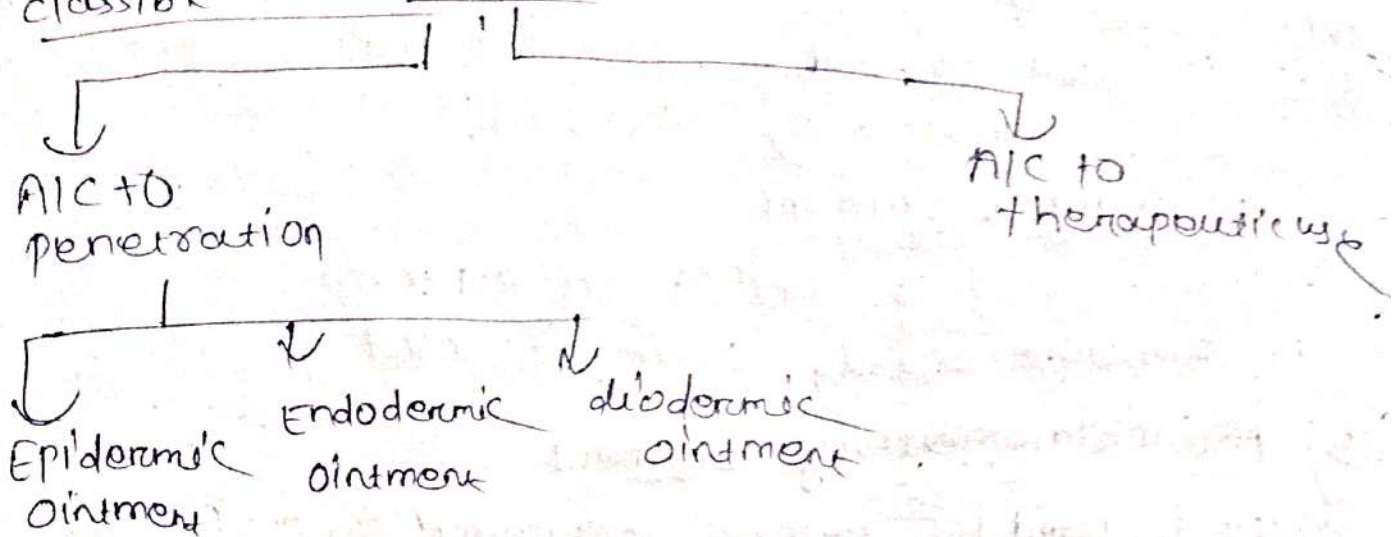 A/C to
penetration
A/C to
therapeutic use
Epidermic
ointment
Endodermic
ointment
diodermic
ointment